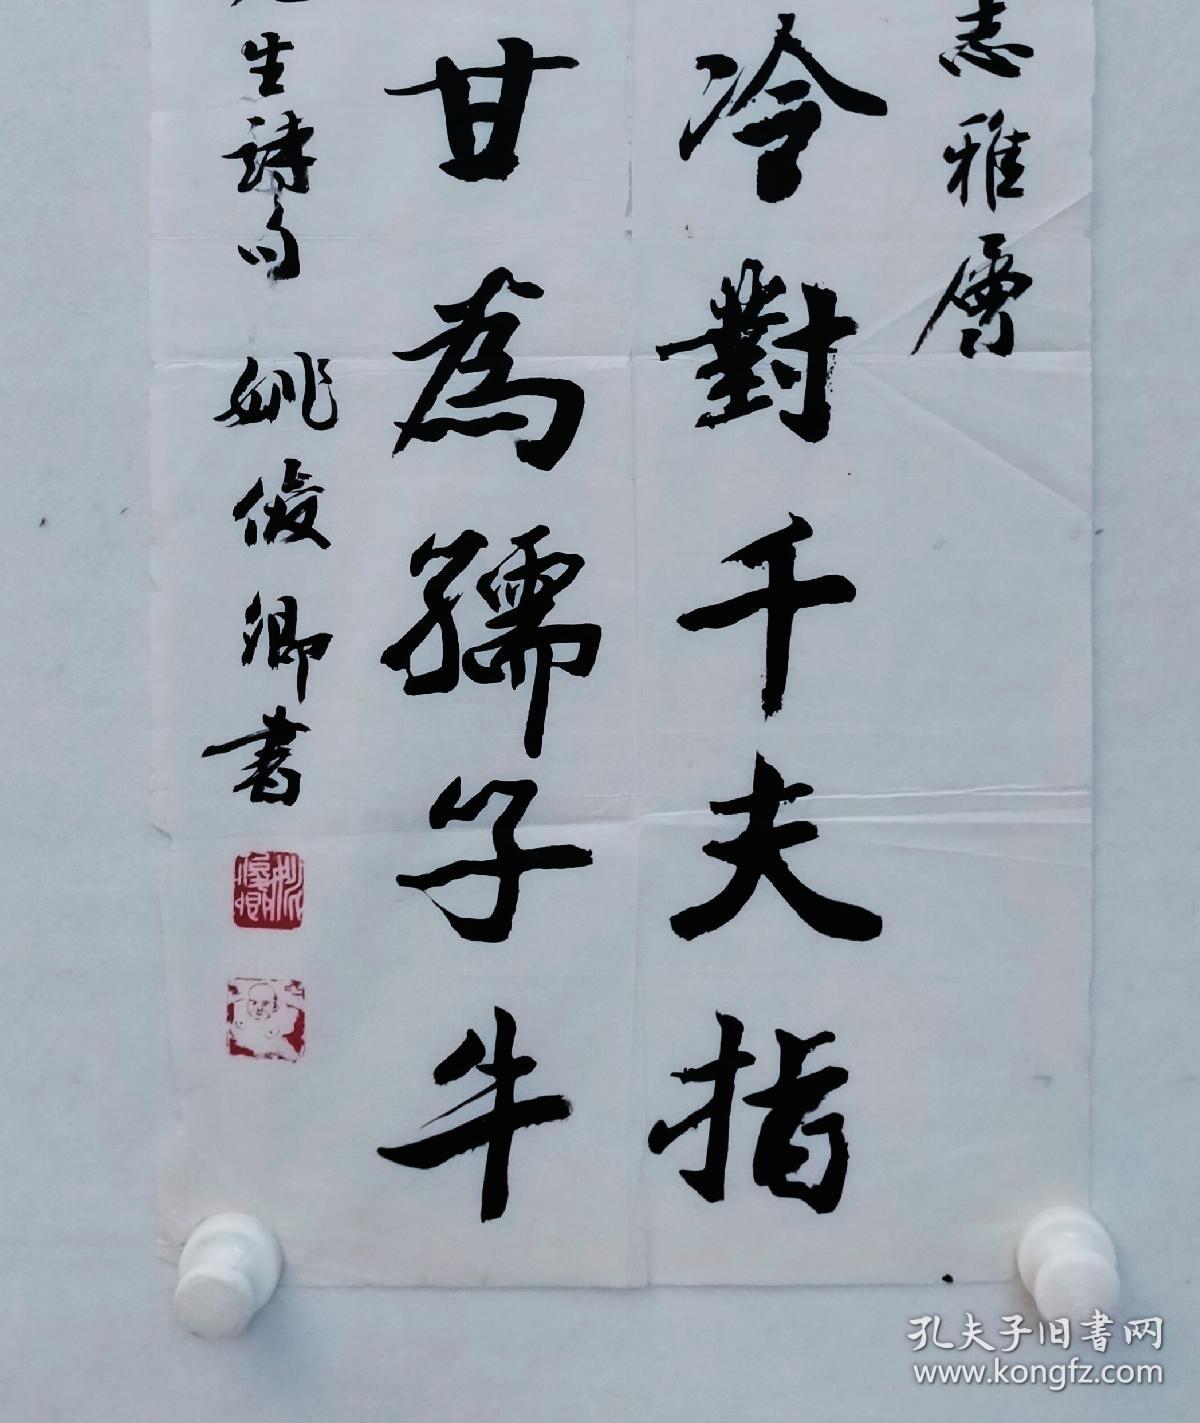 志雅屬
冷對千夫指
甘為孺子牛
生詩句 姚俊卿書
姚俊卿
孔夫子旧書网
www.kongfz.com